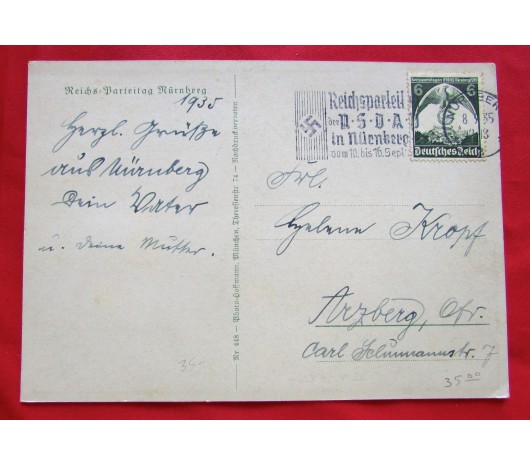 Reichs-Parteitag Nürnberg
1935
Herzl. Grüße
aus Nürnberg
Dein Vater
u. deine Mutter.
Nr 448 — Photo-Hoffmann, München, Theresienstr. 74 — Nachdruck verboten
Reichsparteit
der N·S·D·A
in Nürnberg
vom 10. bis 16. Sept
6 6
Deutsches Reich
8. 35
Frl.
Helene Kropf
Arzberg, Ofr.
Carl Schumannstr. 7
35 00